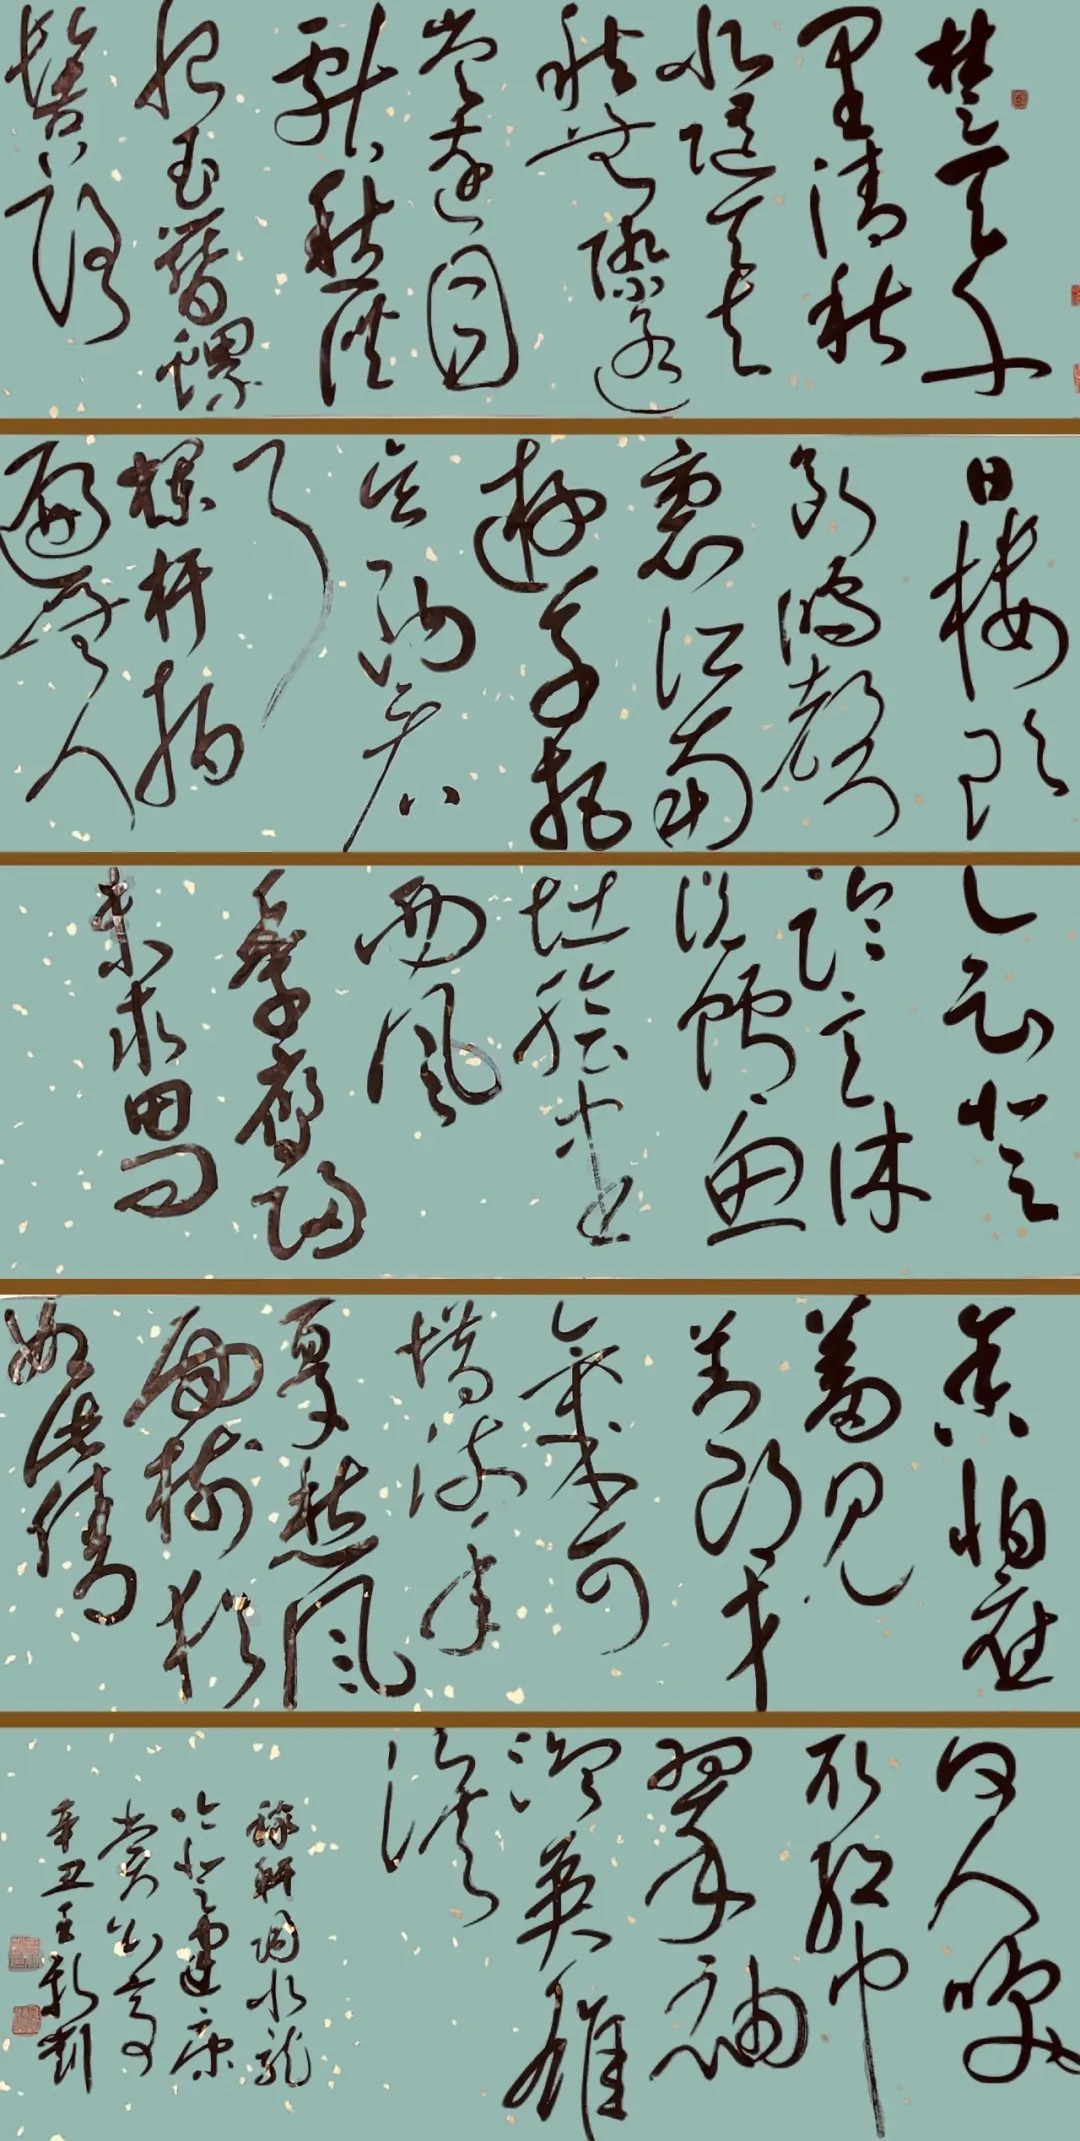 楚天千
里清秋
水随天去
秋无际遥
岑远目
献愁供
恨玉簪螺
髻落
日楼头
断鸿声
裏江南
游子把
吴钩看
了
栏杆拍
遍无人
会登
临意休
说鲈鱼
堪脍尽
西风
季鹰归
未求田问
舍怕应
羞见
刘郎才
气可
惜流年
忧愁风
雨树犹
如此倩
何人唤
取红巾
翠袖
揾英雄
泪
稼轩词水龙
吟登建康
赏心亭
辛丑王新